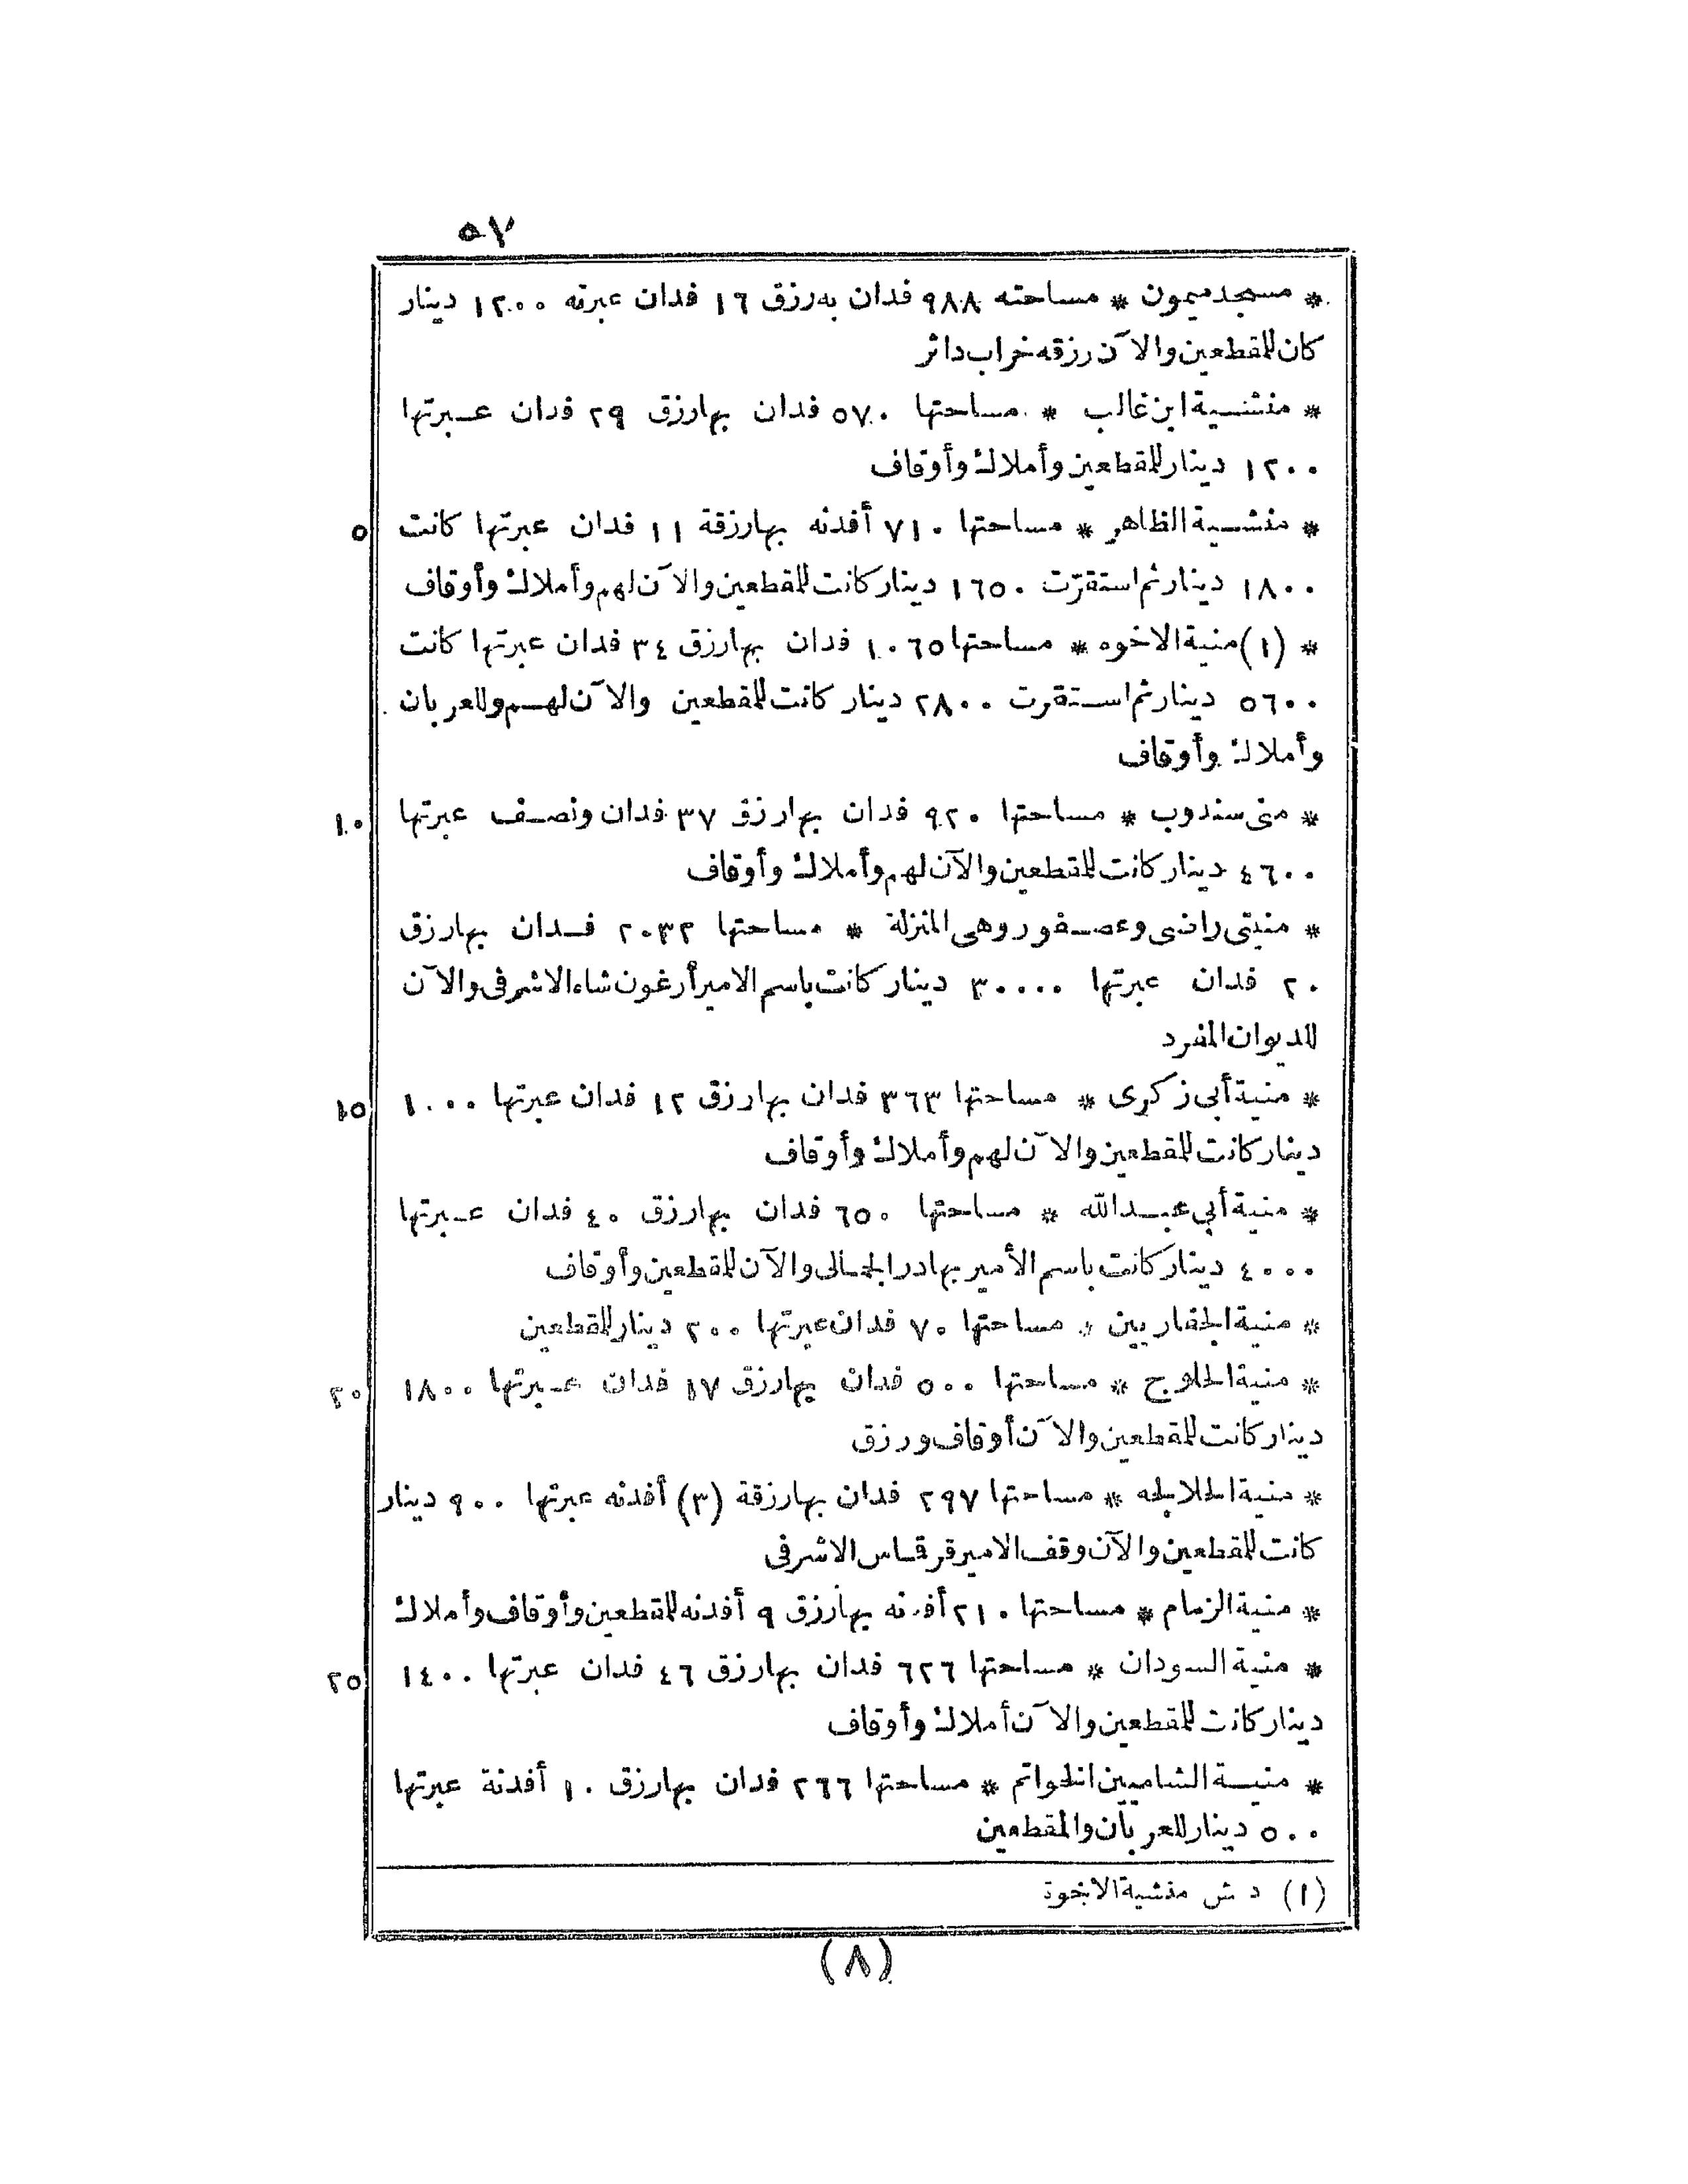 ٥٧
* مسجد ميمون * مساحته ٩٨٨ فدان به رزق ١٦ فدان عبرته ١٢٠٠ دينار
كان للمقطعين والآن رزقه خراب داثر
* منشية ابن غالب * مساحتها ٥٧٠ فدان بها رزق ٢٩ فدان عبرتها
١٢٠٠ دينار للمقطعين وأملاك وأوقاف
* منشية الظاهر * مساحتها ٧١٠ أفدنه بها رزقة ١١ فدان عبرتها كانت ٥
١٨٠٠ دينار ثم استقرّت ١٦٥٠ دينار كانت للمقطعين والآن لهم وأملاك وأوقاف
* (١) منية الاخوه * مساحتها ١٠٦٥ فدان بها رزق ٣٤ فدان عبرتها كانت
٥٦٠٠ دينار ثم استقرت ٢٨٠٠ دينار كانت للمقطعين والآن لهم وللعربان
وأملاك وأوقاف
* منى سندوب * مساحتها ٩٢٠ فدان بها رزق ٣٧ فدان ونصف عبرتها ١٠
٤٦٠٠ دينار كانت للمقطعين والآن لهم وأملاك وأوقاف
* منيتى راضى وعصفور وهى المنزلة * مساحتها ٢٠٣٢ فدان بها رزق
٢٠ فدان عبرتها ٣٠٠٠٠ دينار كانت باسم الامير أرغون شاه الاشرفى والآن
للديوان المفرد
* منية أبى زكرى * مساحتها ٣٦٣ فدان بها رزق ١٢ فدان عبرتها ١٠٠٠ ١٥
دينار كانت للمقطعين والآن لهم وأملاك وأوقاف
* منية أبى عبد الله * مساحتها ٦٥٠ فدان بها رزق ٤٠ فدان عبرتها
٤٠٠٠ دينار كانت باسم الأمير بهادر الجمالى والآن للمقطعين وأوقاف
* منية الجفاريين * مساحتها ٧٠ فدان عبرتها ٢٠٠ دينار للمقطعين
* منية الحلوج * مساحتها ٥٠٠ فدان بها رزق ١٧ فدان عبرتها ١٨٠٠ ٢٠
دينار كانت للمقطعين والآن أوقاف ورزق
* منية الحلابلحه * مساحتها ٢٩٧ فدان بها رزقة (٣) أفدنه عبرتها ٩٠٠ دينار
كانت للمقطعين والآن وقف الامير قرقماس الاشرفى
* منية الزمام * مساحتها ٢١٠ أفدنه بها رزق ٩ أفدنه للمقطعين وأوقاف وأملاك
* منية السودان * مساحتها ٦٢٦ فدان بها رزق ٤٦ فدان عبرتها ١٤٠٠ ٢٥
دينار كانت للمقطعين والآن أملاك وأوقاف
* منية الشاميين الخواتم * مساحتها ٢٦٦ فدان بها رزق ١٠ أفدنة عبرتها
٥٠٠ دينار للعربان والمقطعين
(١) د ش منشية الاخوة
(٨)